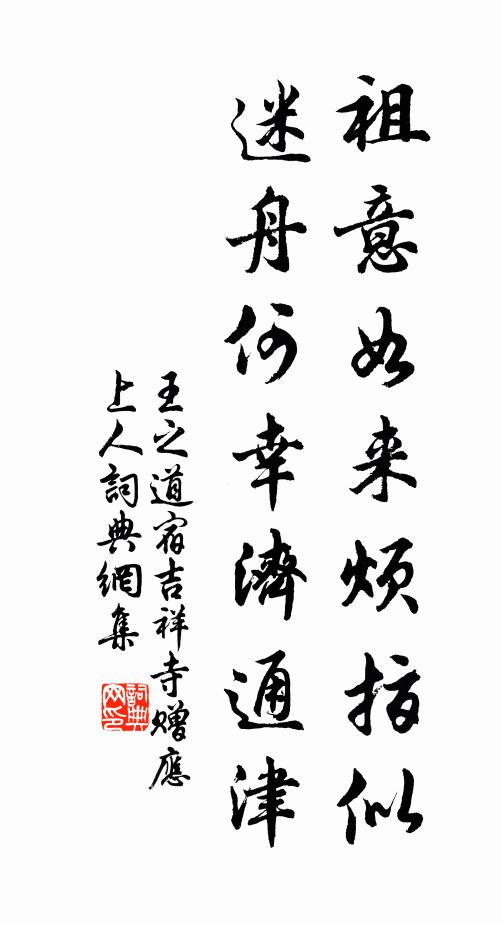 祖意如来煩指似
迷舟何幸濟通津
王之道宿吉祥寺贈應
上人詞典網集
詞典网印